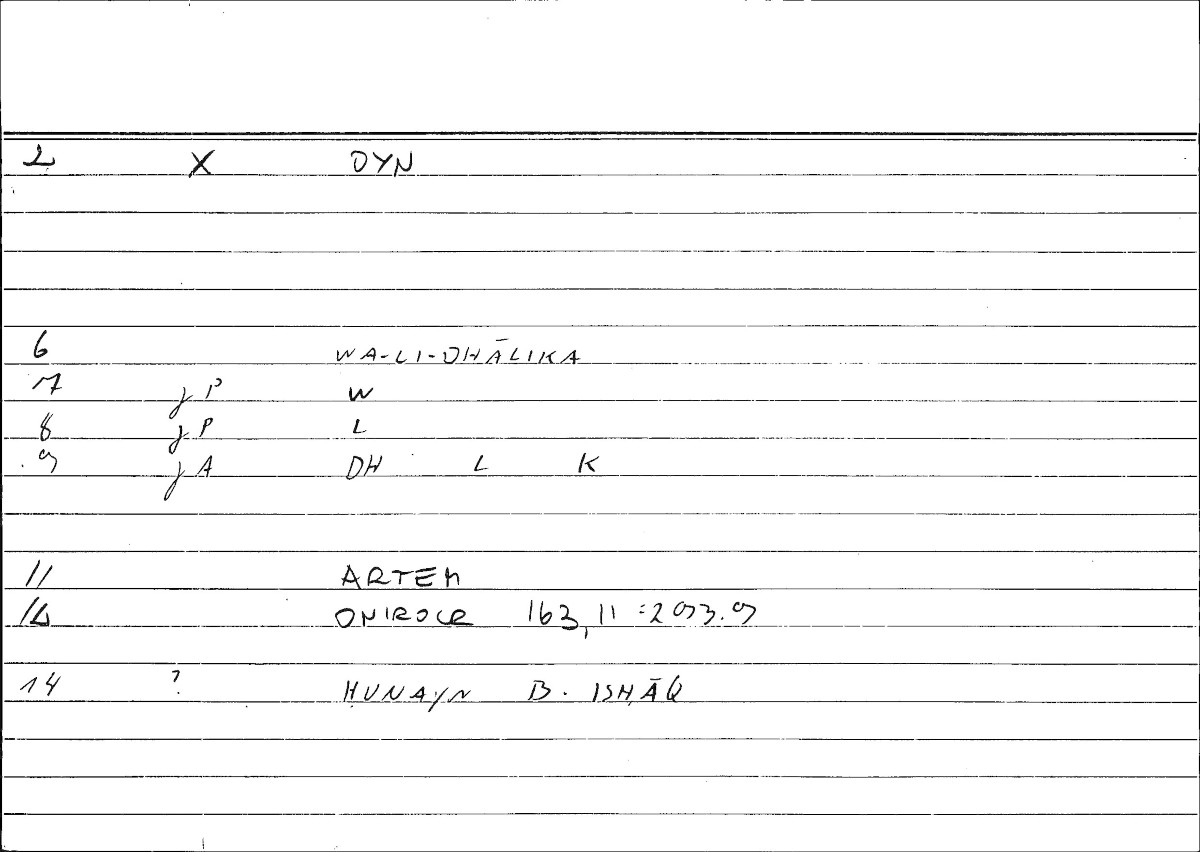 2 X DYN
6 WA-LI-DHĀLIKA
7 jP W
8 jP L
9 jA DH L K
11 ARTEM
12 ONIROCR 163,11 = 293.9
14 ? ḤUNAYN B. ISḤĀQ